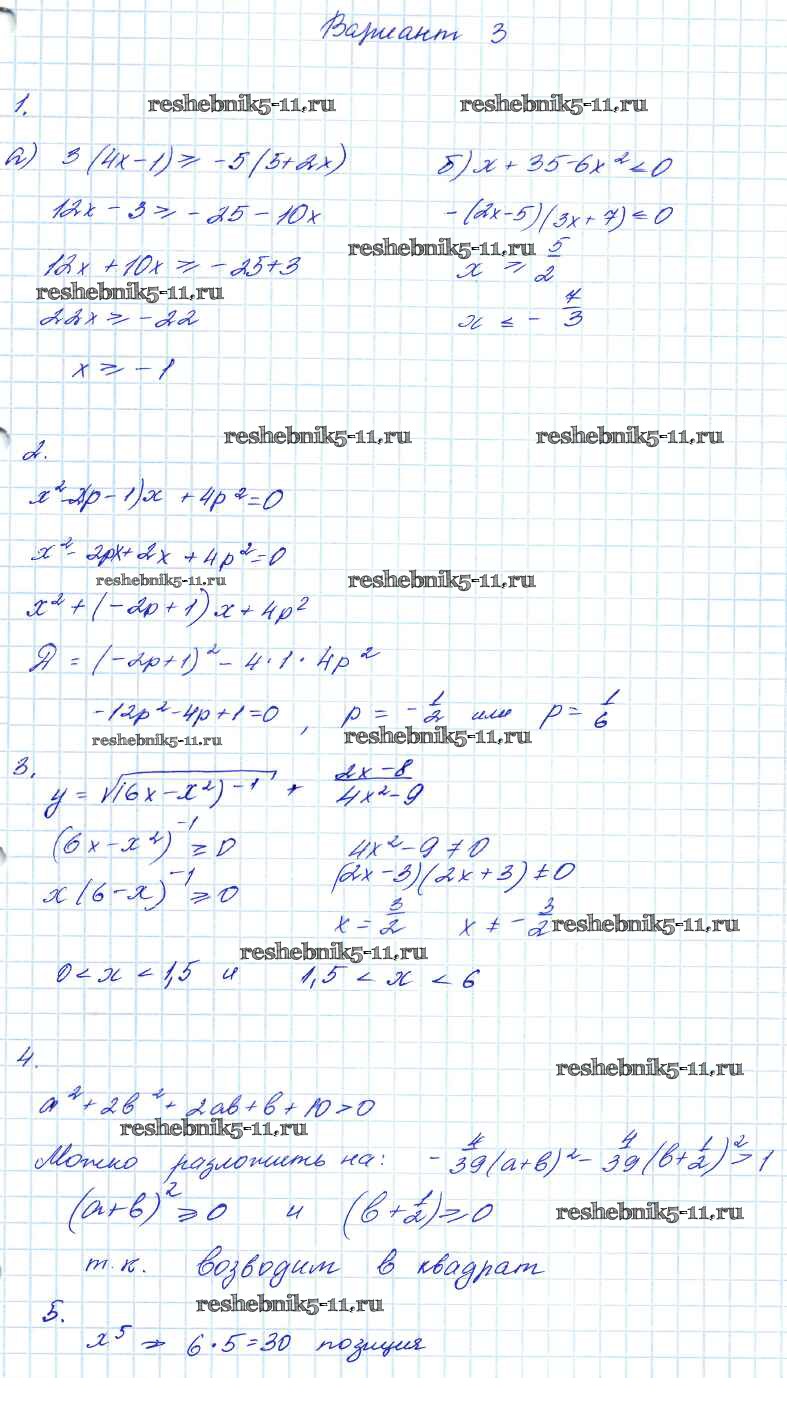 Вариант 3
1.
reshebnik5-11.ru reshebnik5-11.ru
а) 3(4x-1) ≥ -5(5+2x) б) x + 35-6x² ≤ 0
12x - 3 ≥ -25 - 10x -(2x-5)(3x+7) ≤ 0
reshebnik5-11.ru
12x + 10x ≥ -25+3 x ≥ 5/2
reshebnik5-11.ru
22x ≥ -22 x ≤ - 7/3
x ≥ -1
reshebnik5-11.ru reshebnik5-11.ru
2.
x²-2(p-1)x + 4p²=0
x²- 2px+2x + 4p²=0
reshebnik5-11.ru reshebnik5-11.ru
x² + (-2p+1)x + 4p²
D = (-2p+1)² - 4·1·4p²
-12p²-4p+1=0 , p = -1/2 или p = 1/6
reshebnik5-11.ru reshebnik5-11.ru
3.
y = √(6x-x²)⁻¹ + (2x-8)/(4x²-9)
(6x-x²)⁻¹ ≥ 0 4x²-9 ≠ 0
x(6-x)⁻¹ ≥ 0 (2x-3)(2x+3) ≠ 0
x = 3/2 x ≠ -3/2 reshebnik5-11.ru
reshebnik5-11.ru
0 < x < 1,5 и 1,5 < x < 6
4.
reshebnik5-11.ru
a²+2b²+2ab+b+10>0
reshebnik5-11.ru
Можно разложить на: -4/39(a+b)²-4/39(b+1/2)²>1
(a+b)² ≥ 0 и (b+1/2) ≥ 0 reshebnik5-11.ru
т.к. возводим в квадрат
reshebnik5-11.ru
5.
x⁵ ⇒ 6·5=30 позиция